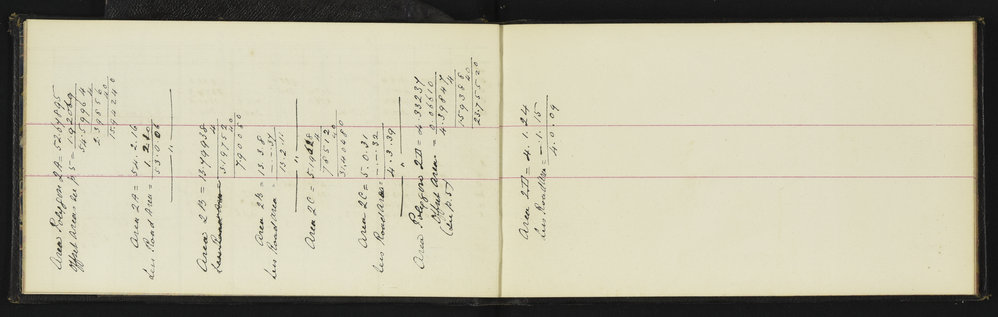 Area Polygon 2A = 52.67895
Offset Area - see p 5 = 1.92069
54.59964
4
2.39856
40
15.94240
Area 2A = 54.2.16
Less Road Area = 1.2.10
53.0.06
"
Area 2B = 13.79938
4
3.19752
40
7.90080
Area 2B = 13.3.8
Less Road Area = -.-.37
13.2.11
"
Area 2C = 5.19628
4
.78512
40
31.40480
Area 2C = 5.0.31
Less Road Area = -.-.32
4.3.39
"
Area Polygon 2D = 4.33237
Offset Area = 0.06610
(See p. 5) 4.39847
4
1.59388
40
23.75520
Area 2D = 4.1.24
Less Road Area = -.1.15
4.0.09